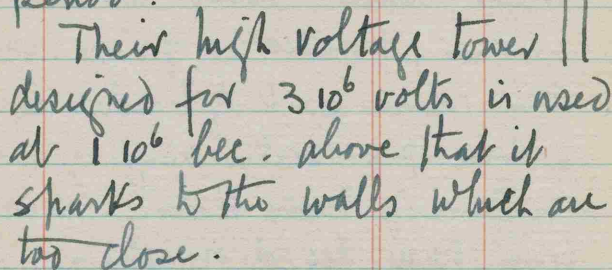 period.
Their high voltage tower
designed for 3 10⁶ volts is used
at 1 10⁶ bec. above that it
sparks to the walls which are
too close.